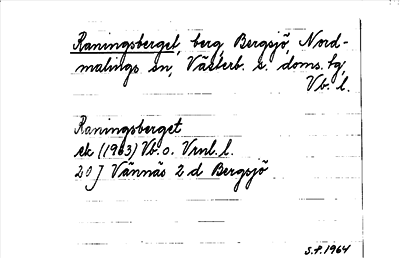 Raningsberget, berg, Bergsjö, Nord-
malings sn, Västerb. s. doms. hg,
Vb. l.
Raningsberget
ek (1963) Vb. o. Vml. l.
20 J Vännäs 2 d Bergsjö
S.F. 1964